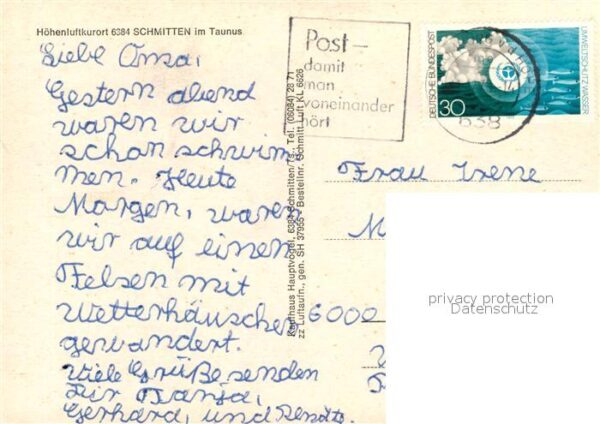 Höhenluftkurort 6384 SCHMITTEN im Taunus
Liebe Omsa,
Gestern abend
waren wir
schon schwim
men. Heute
Morgen, waren
wir auf einen
Felsen mit
Wetterhäuschen
gewandert.
Viele Grüße senden
Dir Tanja,
Gerhard, und Renate.
Kaufhaus Hauptvogel, 6384 Schmitten/Ts., Tel. (06084) 28 71
zz Luftaufn., gen. SH 37955 Bestellnr. Schmitt Luft KL 6626
Post –
damit
man
voneinander
hört
638
DEUTSCHE BUNDESPOST
30
UMWELTSCHUTZ: WASSER
Frau Irene
M
6000
privacy protection
Datenschutz